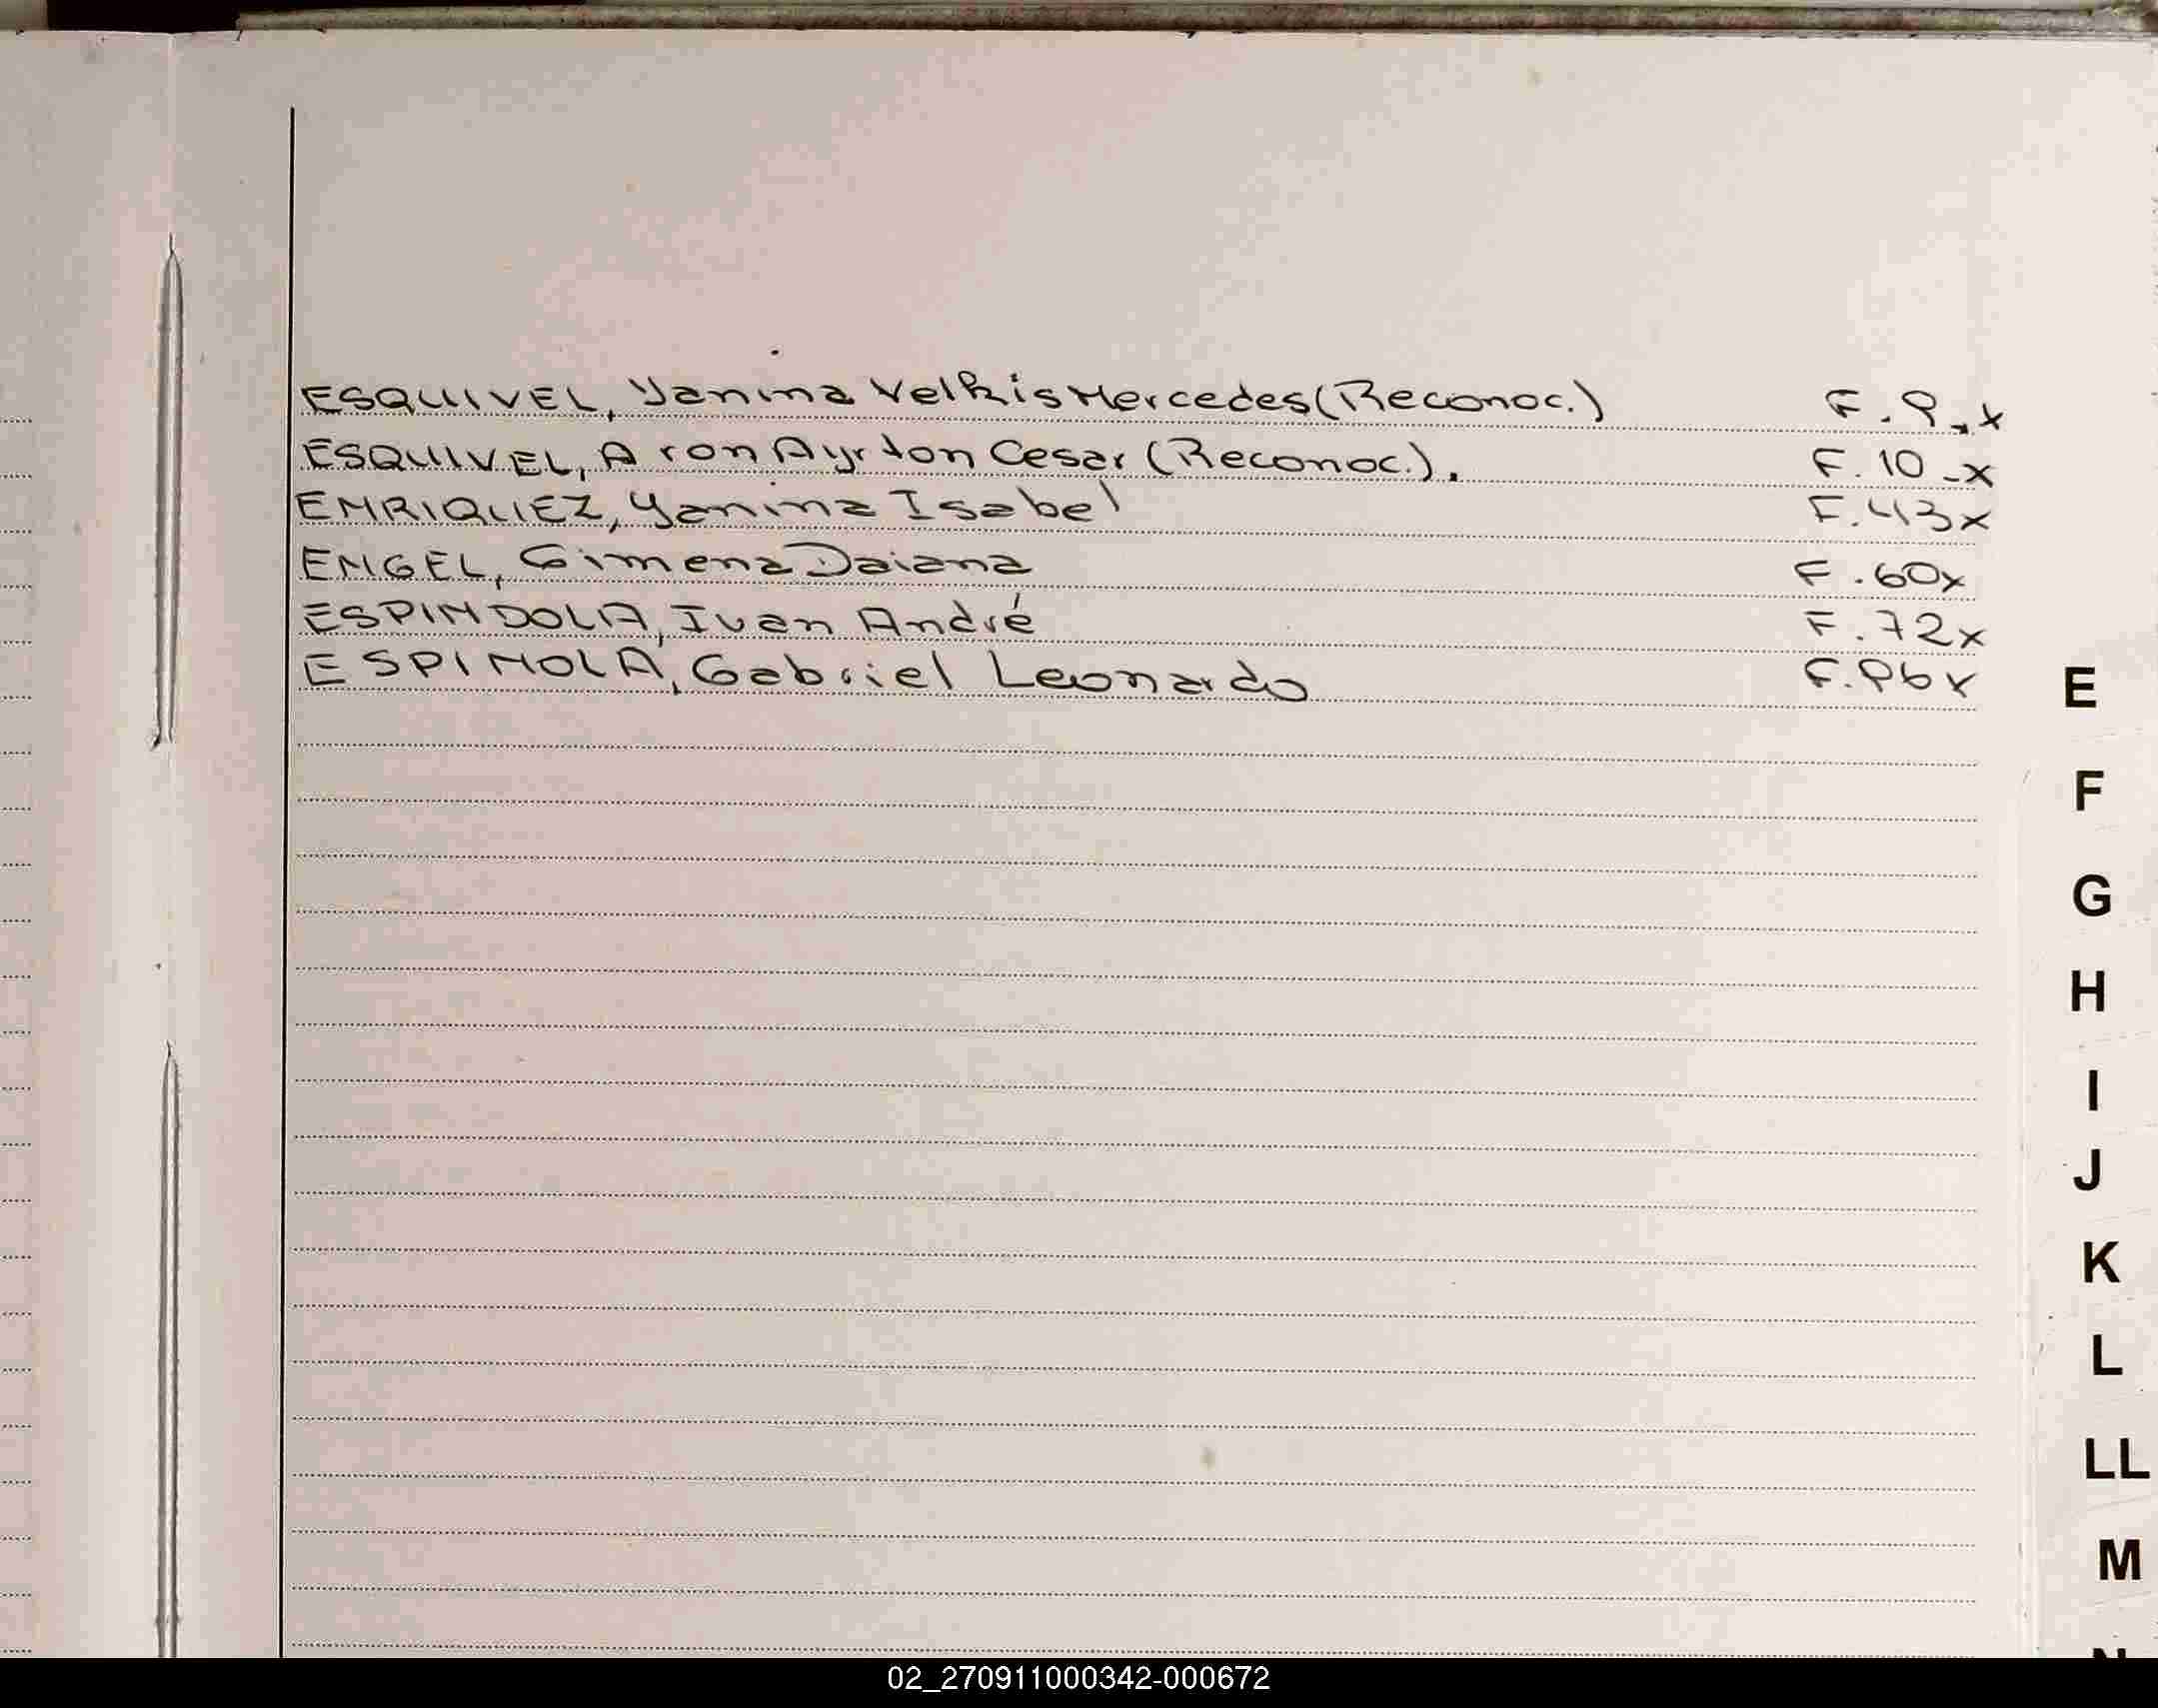 ESQUIVEL, Yanina Velkis Mercedes (Reconoc.) F. 9.x
ESQUIVEL, Aron Ayrton Cesar (Reconoc.). F. 10 -x
ENRIQUEZ, Yanina Isabel F. 43x
ENGEL, Gimena Daiana F. 60x
ESPINDOLA, Ivan André F. 72x
ESPINOLA, Gabriel Leonardo F. 96x
E
F
G
H
I
J
K
L
LL
M
N
02_270911000342-000672